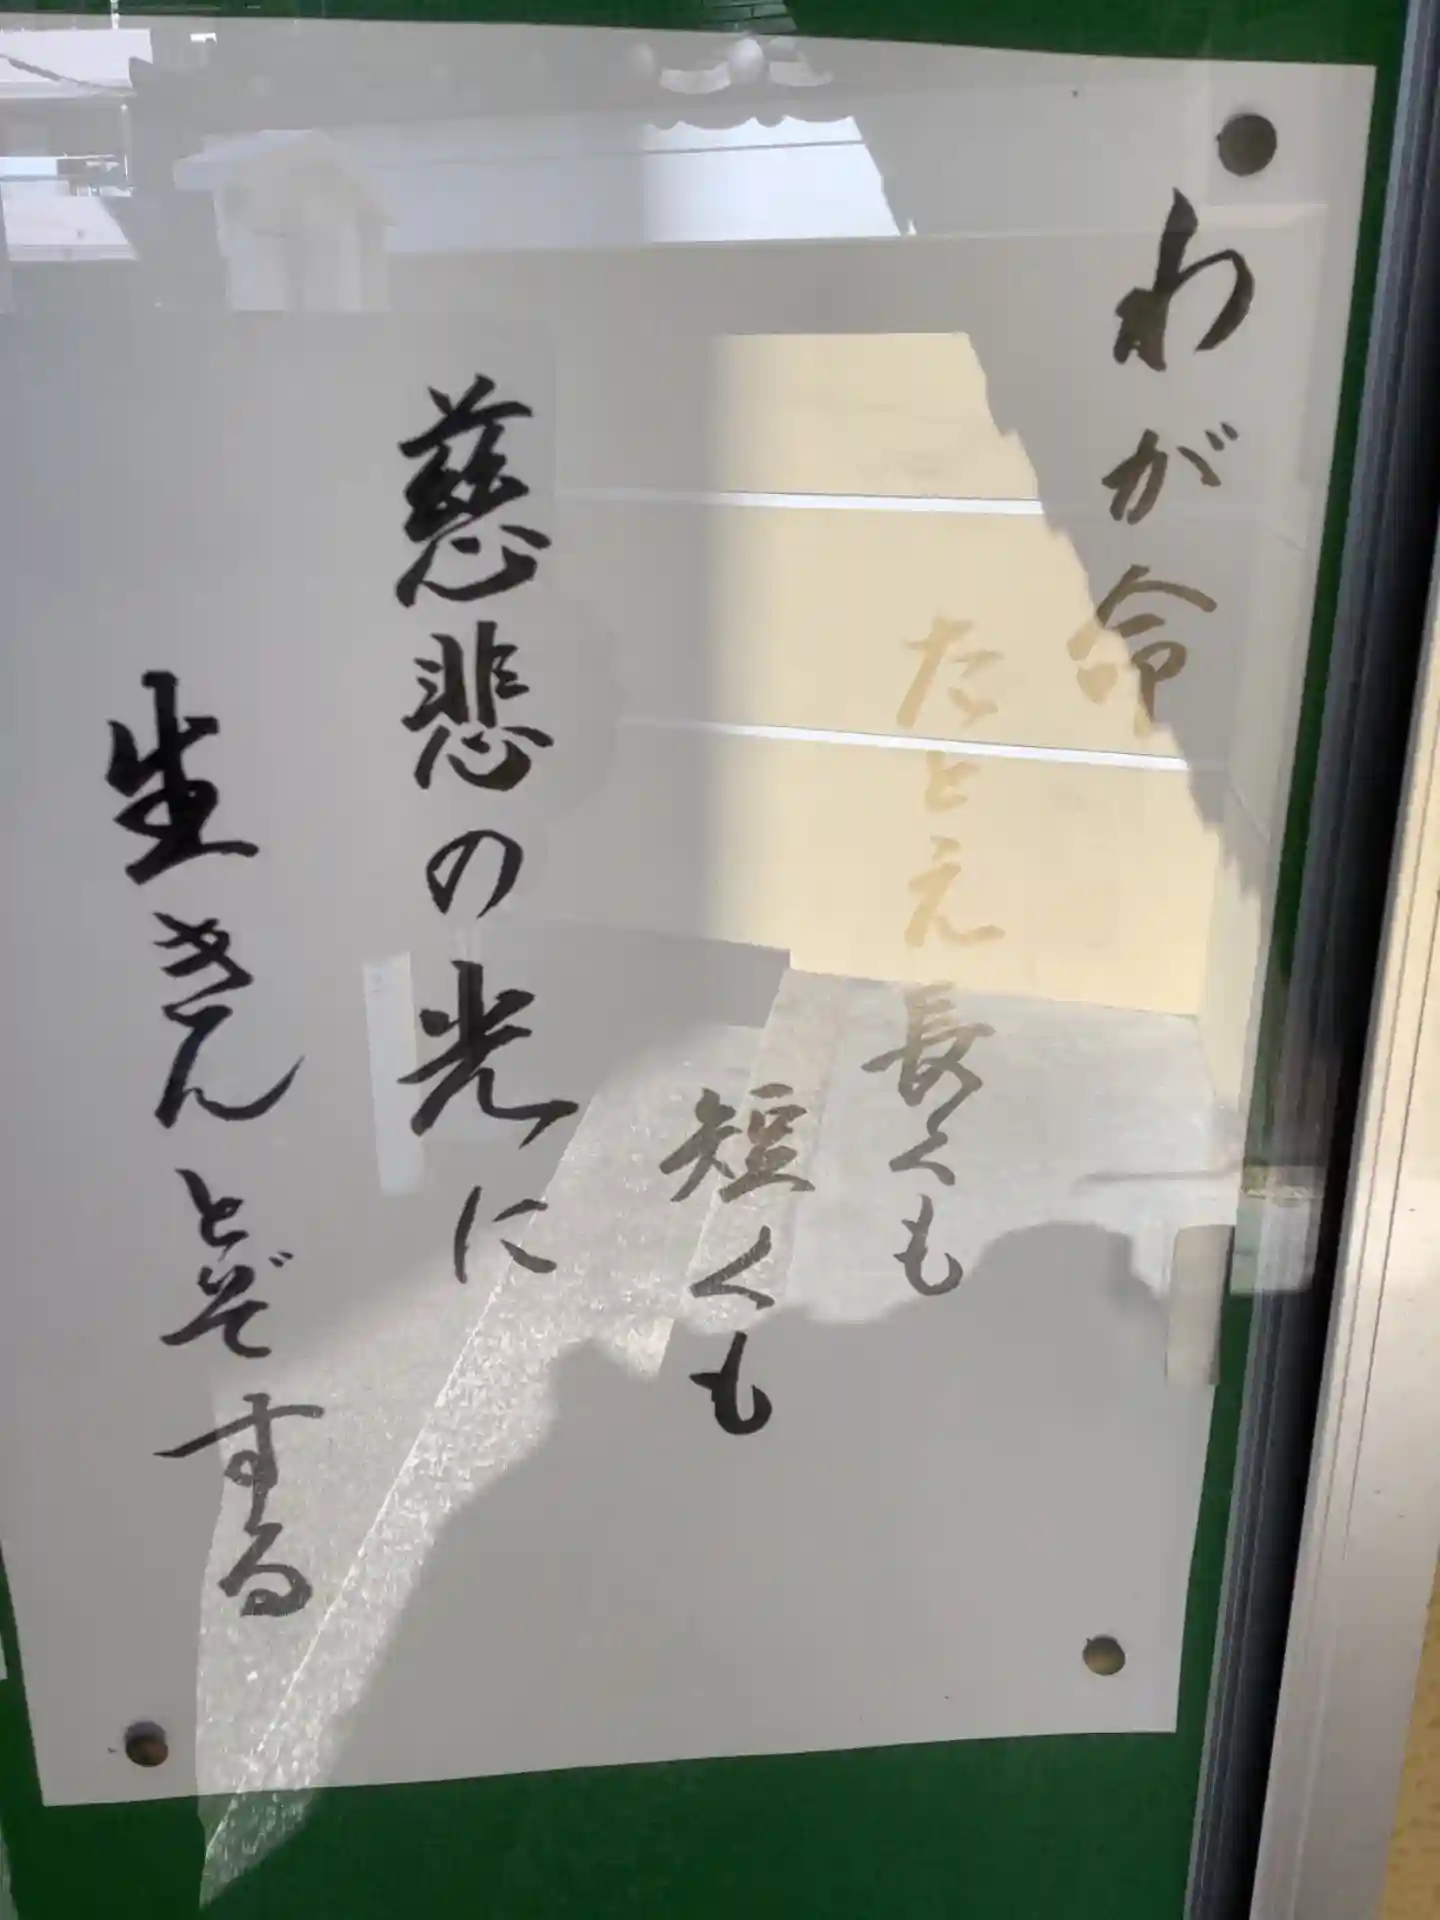 わが命
たとえ長くも
短くも
慈悲の光に
生きんとぞする